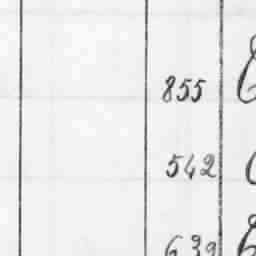 855
542
639